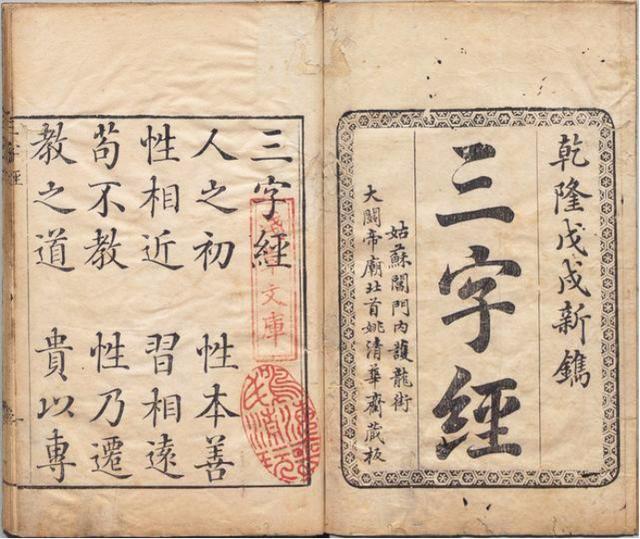 乾隆戊戌新鐫
三字經
姑蘇閶門內護龍街
大關帝廟北首姚清華齋藏板
三字經
文庫
人之初 性本善
性相近 習相遠
苟不教 性乃遷
教之道 貴以專
三字經